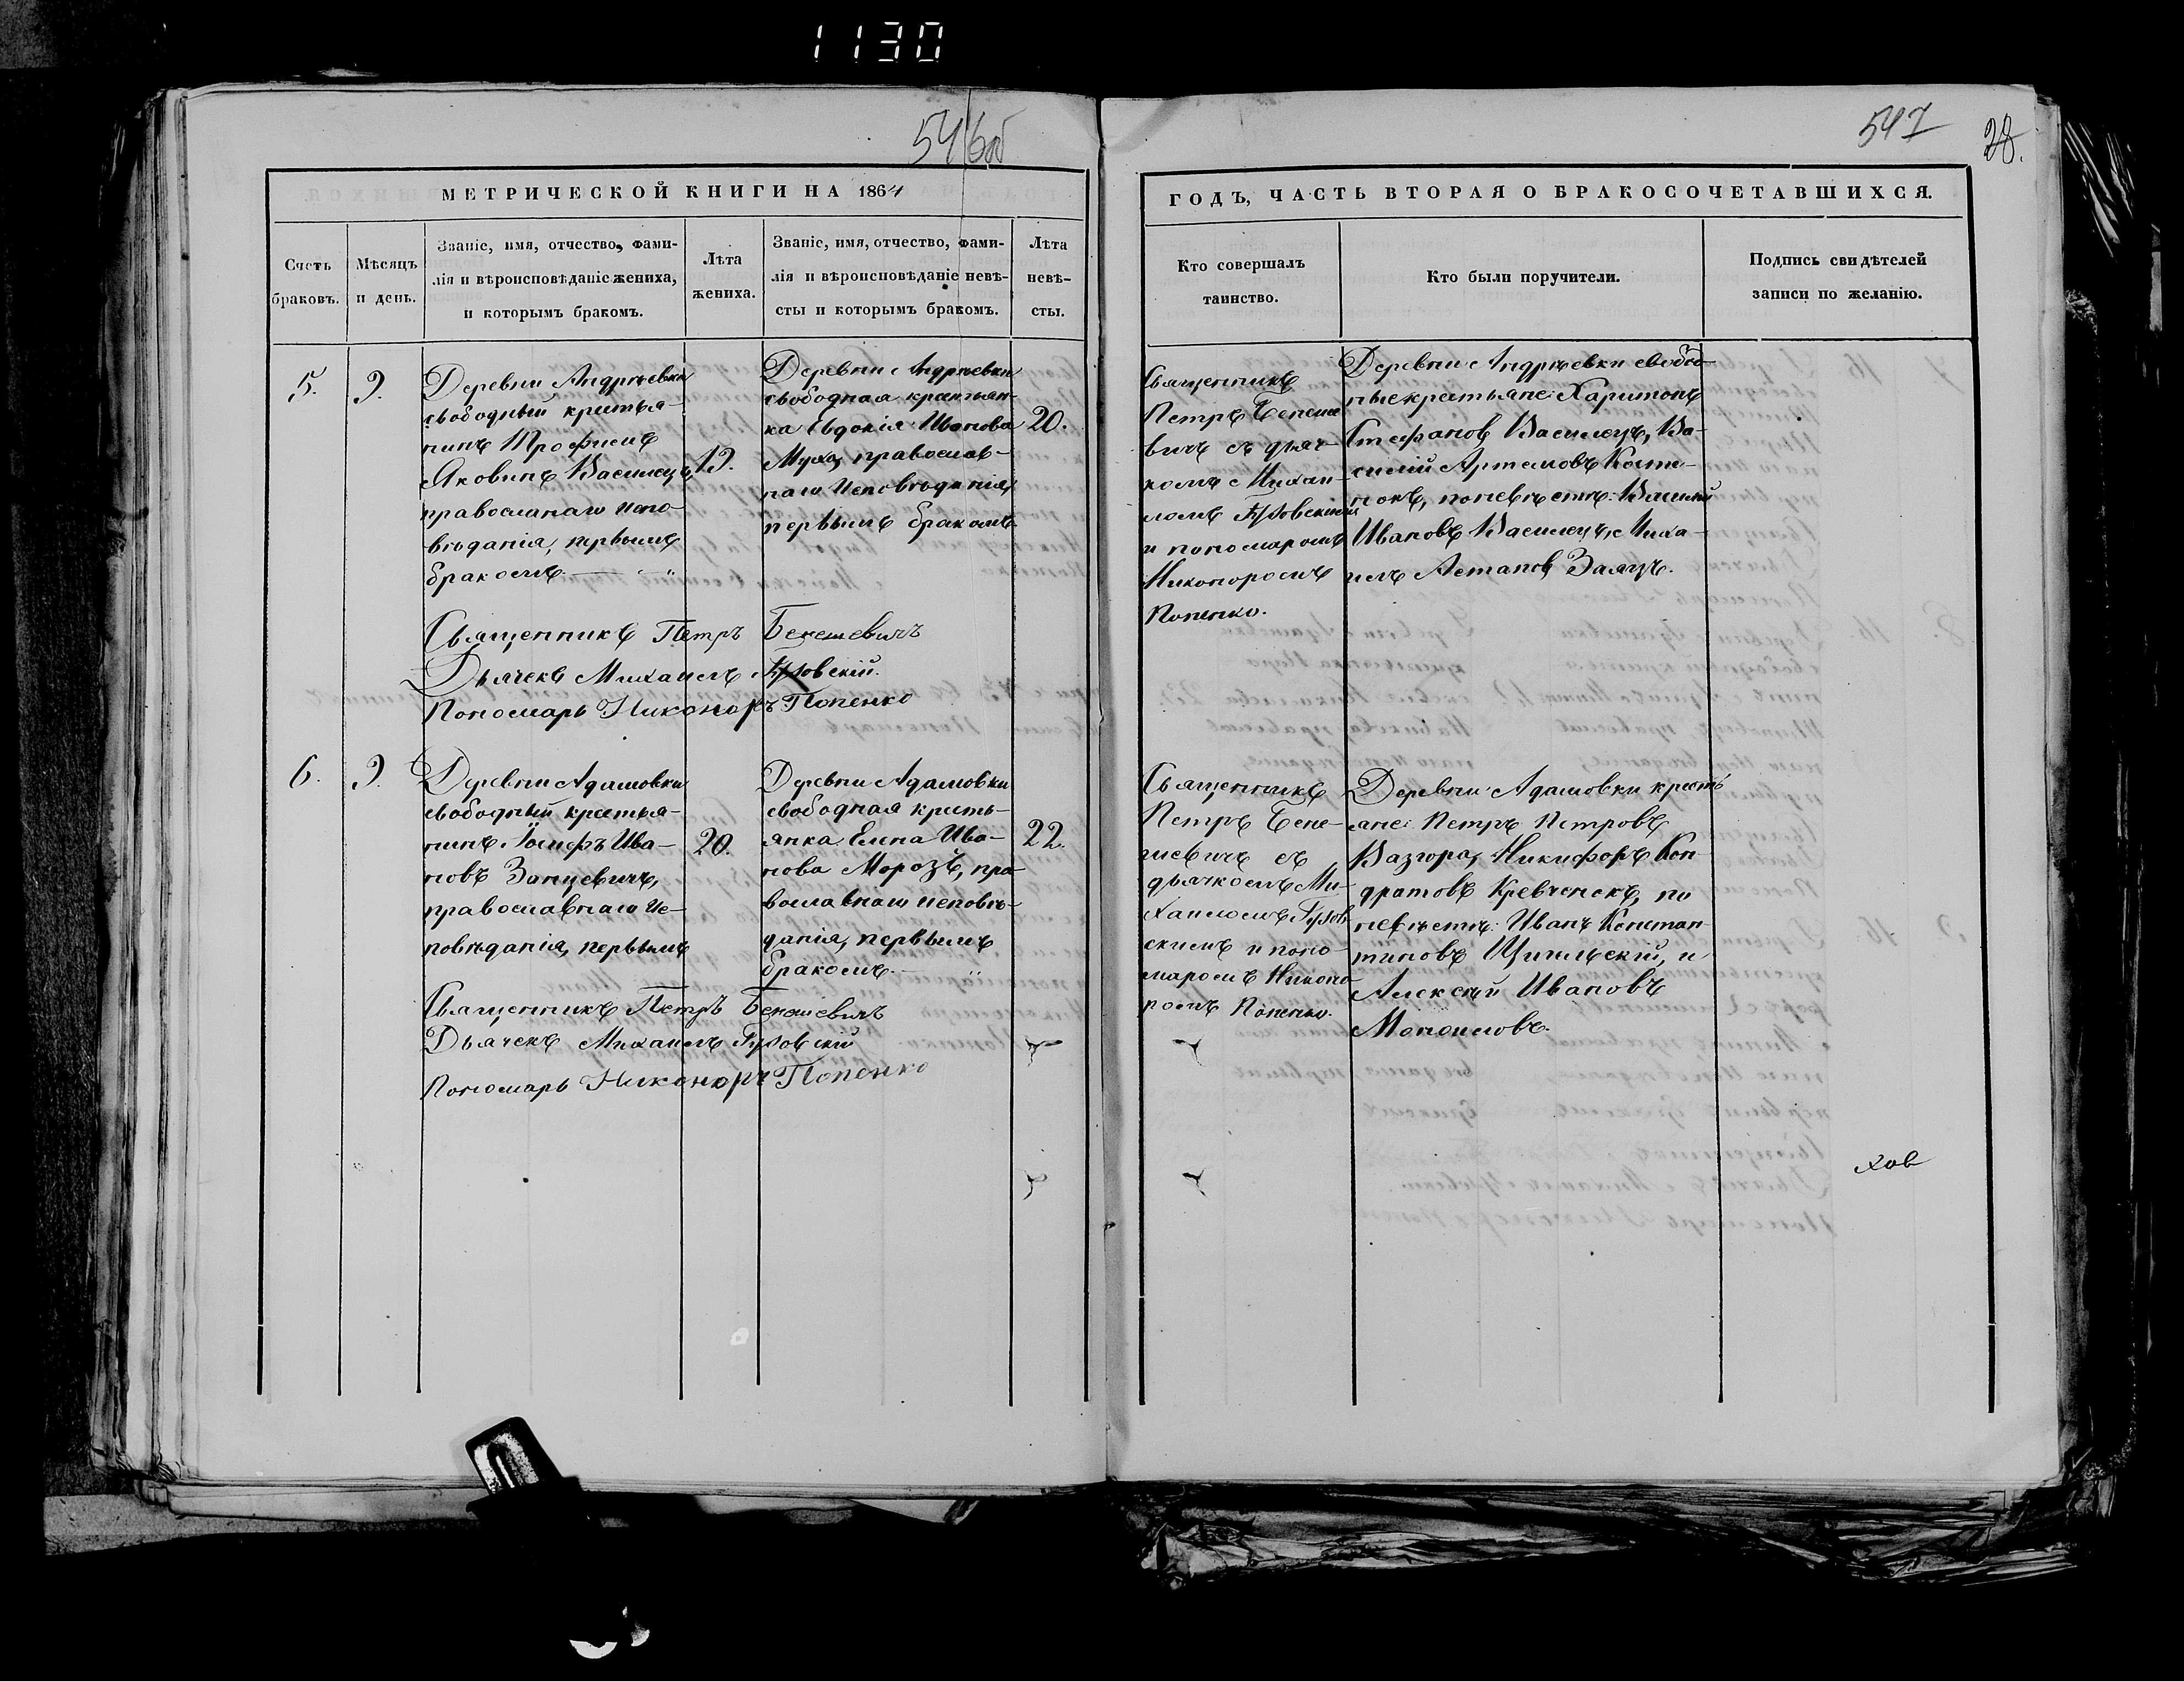 1130
546об
547
28.
МЕТРИЧЕСКОЙ КНИГИ НА 1864
ГОДЪ, ЧАСТЬ ВТОРАЯ О БРАКОСОЧЕТАВШИХСЯ.
Счетъ
браковъ.
Мѣсяцъ
и день.
Званіе, имя, отчество, фами-
лія и вѣроисповѣданіе жениха,
и которымъ бракомъ.
Лѣта
жениха.
Званіе, имя, отчество, фами-
лія и вѣроисповѣданіе невѣ-
сты и которымъ бракомъ.
Лѣта
невѣ-
сты.
Кто совершалъ
таинство.
Кто были поручители.
Подпись свидѣтелей
записи по желанію.
5.
9.
Деревни Андрѣевки
свободный крестья-
нинъ Трофимъ
Яковинъ Василецъ,
православнаго испо-
вѣданія, первымъ
бракомъ.
19.
Деревни Андрѣевки
свободная крестьян-
ка Евдокія Иванова
Муха, православ-
наго исповѣданія,
первымъ бракомъ
20.
Священникъ
Петръ Бенеше
вичъ съ дьяч-
комъ Михаи-
ломъ
и пономаромъ
Никоноромъ
Попенко.
Деревни Андрѣевки свобод-
ные крестьяне: Харитонъ
Стефановъ Василецъ, Ва-
силій Артемовъ Косте-
нокъ, по невѣстѣ: Василій
Ивановъ Василецъ, Миха-
илъ Астаповъ Заяцъ.
Священникъ Петръ Бенешевичъ
Дьячекъ Михаилъ
Пономарь Никоноръ Попенко
6.
9.
Деревни Адамовки
свободный крестья-
нинъ Іосифъ Ива-
новъ Занцевичъ,
православнаго ис-
повѣданія, первымъ
20.
Деревни Адамовки
свободная кресть-
янка Елена Ива-
нова Морозъ, пра-
вославнаго исповѣ-
данія, первымъ
бракомъ.
22.
Священникъ
Петръ Бене-
шевичъ съ
дьячкомъ Ми-
хаиломъ Гузов
скимъ и поно-
маромъ Никоно
ромъ Попенко.
Деревни Адамовки кресть
яне: Петръ Петровъ
Вазгора, Никифоръ Кон
дратовъ Кревченокъ, по
невѣстѣ: Иванъ Констан
тиновъ и
Алексѣй Ивановъ
Мопоиловъ.
Священникъ Петръ Бенешевичъ
Дьячекъ Михаилъ Гузовскій
Пономарь Никоноръ Попенко
хов